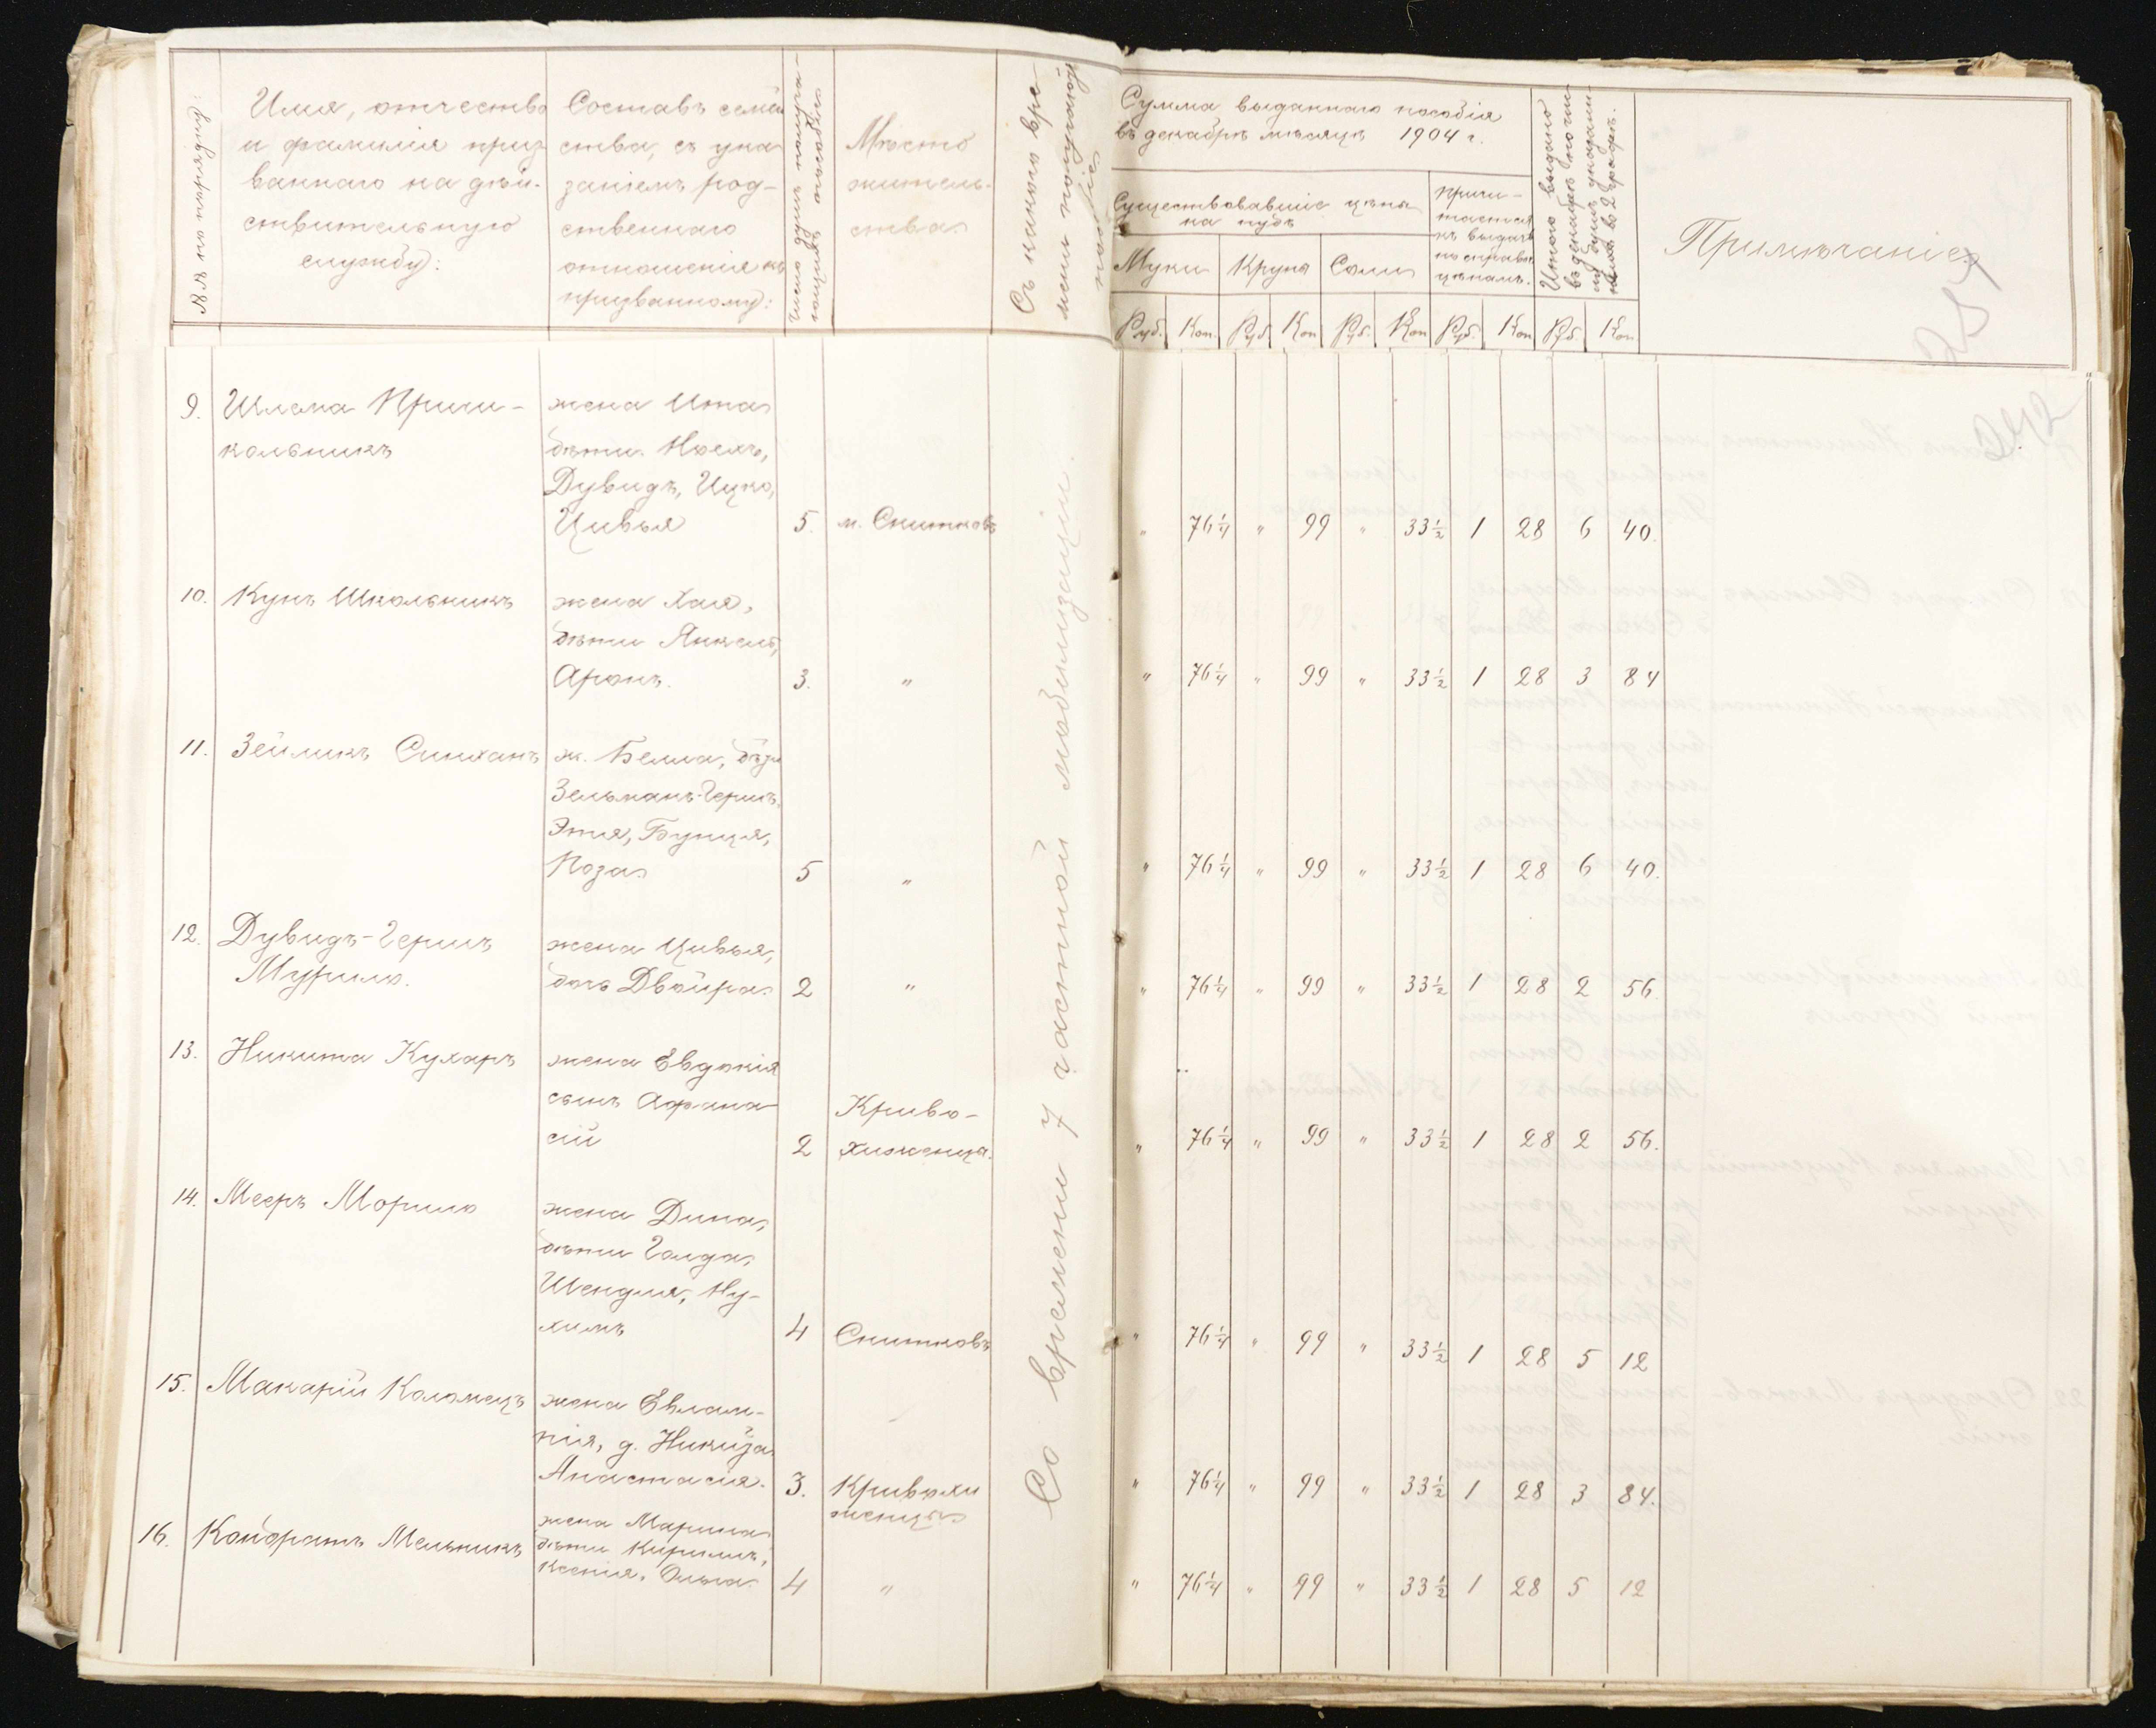 №№ по порядку:
Имя, отчество
и фамилія приз
ваннаго на дѣй-
ствительную
службу:
Составъ семей
ства, съ ука
заніемъ род-
ственнаго
отношенія къ
призванному:
Число душъ получа-
ющихъ пособія
Мѣсто
житель-
ства
Съ какого вре-
мени получаютъ
пособіе
Сумма выданнаго пособія
въ декабрѣ мѣсяцѣ 1904 г.
Существовавшіе цѣны
на пудъ
Муки Крупа Соли
Причи-
тается
къ выдачѣ
по справоч
цѣнамъ.
Итого выдано
въ декабрѣ
Примѣчаніе
Руб. Коп. Руб. Коп Руб. Коп Руб. Коп Руб. Коп
257
242
9. Шлема Причи-
кольникъ
жена Ита
дѣти Йосъ,
Дувидъ, Ицко,
Цивья 5. м. Снитковъ " 76 1/4 " 99 " 33 1/2 1 28 6 40.
10. Кунъ Школьникъ жена Хая,
дѣти Янкель,
Аронъ. 3. " " 76 1/4 " 99 " 33 1/2 1 28 3 84
11. Зейликъ Синханъ ж. Белла, дѣти
Зельманъ-Гершъ,
Этя, Бунця,
Роза 5 " " 76 1/4 " 99 " 33 1/2 1 28 6 40.
12. Дувидъ-Гершъ
Мурило.
жена Цивья,
дочь Двойра 2 " " 76 1/4 " 99 " 33 1/2 1 28 2 56.
13. Никита Кухаръ жена Евдокія
сынъ Афана-
сій 2 Криво-
хиженца. " 76 1/4 " 99 " 33 1/2 1 28 2 56.
14. МееръМорило жена Дина,
дѣти Голда,
Шендля, Ну-
химъ 4 Снитковъ " 76 1/4 " 99 " 33 1/2 1 28 5 12
15. Макарій Коломецъ жена Евлам-
пія, д. Никита
Анастасія. 3. Кривохи
женцы " 76 1/4 " 99 " 33 1/2 1 28 3 84.
16. Кондратъ Мельникъ жена Марина
дѣти Кириллъ,
Ксенія, Ольга 4 " " 76 1/4 " 99 " 33 1/2 1 28 5 12
Со времени 7 частной мобилизаціи.